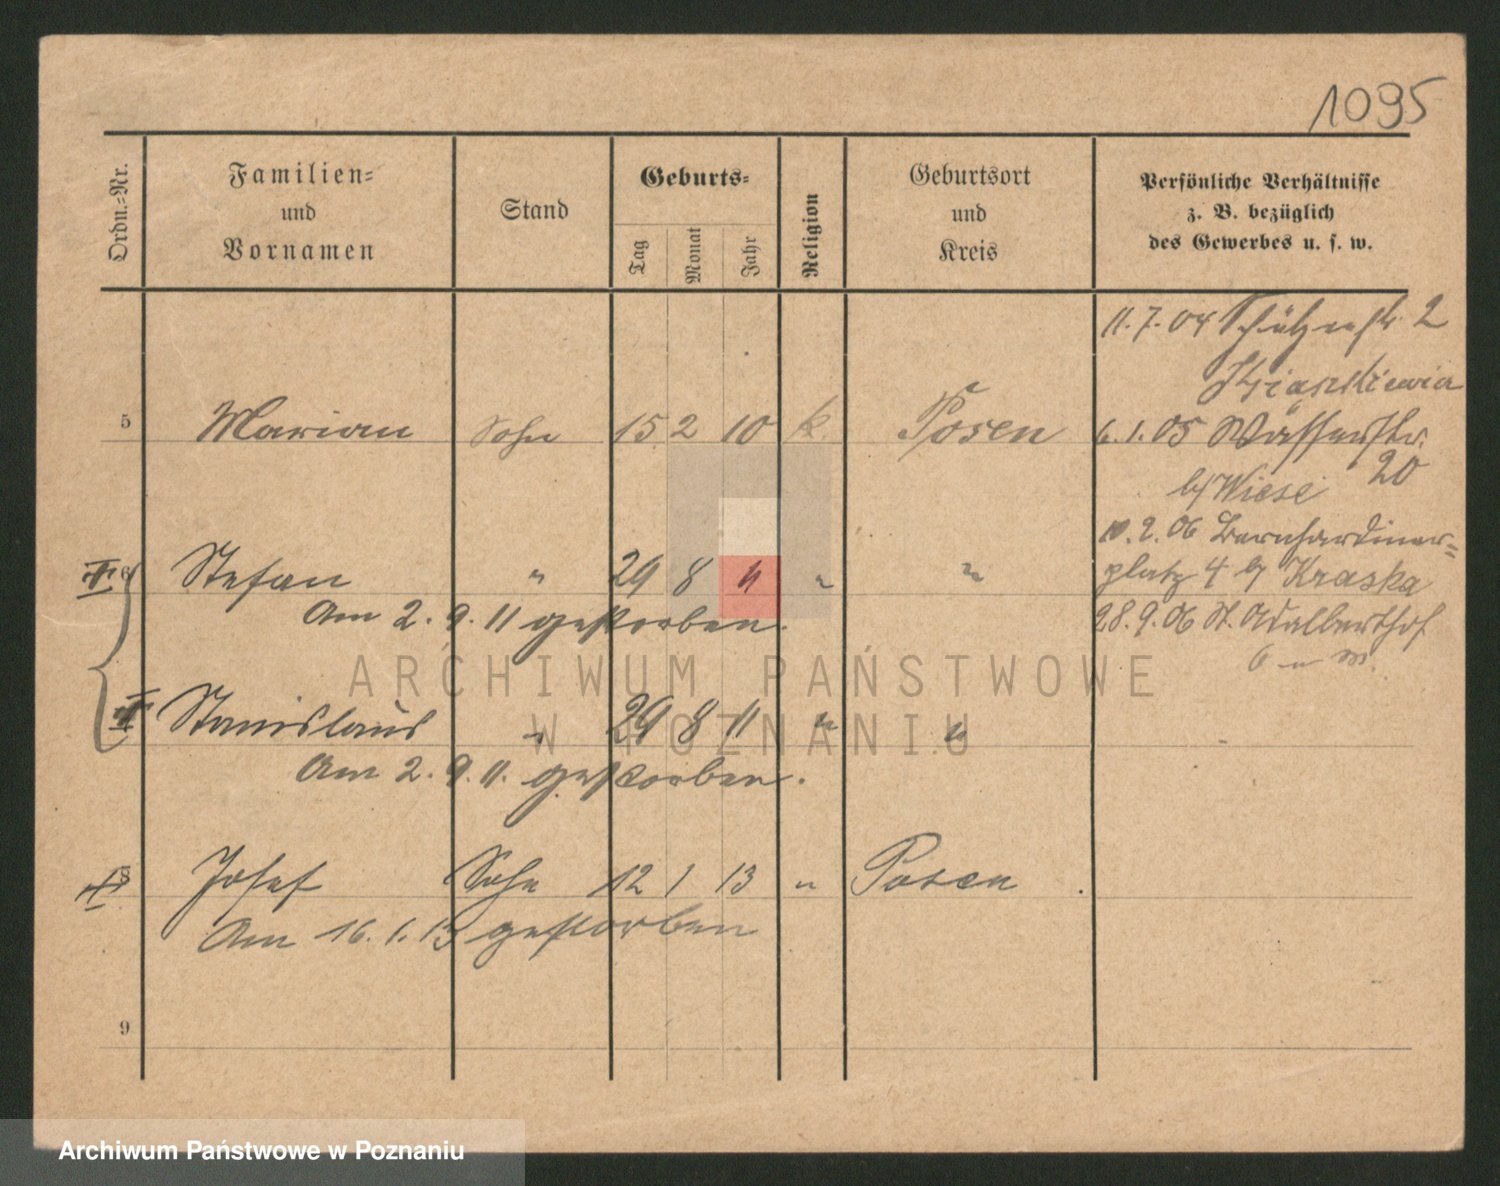 1095
Ordn.-Nr.
Familien-
und
Vornamen
Stand
Geburts-
Tag
Monat
Jahr
Religion
Geburtsort
und
Kreis
Persönliche Verhältnisse
z. B. bezüglich
des Gewerbes u. s. w.
11.7.04 Schützenstr. 2
5 Marian Sohn 15 2 10 k. Posen
6.1.05 Wasserstr.
20
b/ Wiese
10.2.06 Bernhardiner-
platz 4 b/ Kraska
28.9.06 St. Adalberthof
6 Stefan " 29 8 11 " "
Am 2.9.11 gestorben.
Stanislaus " 29 8 11 " "
Am 2.9.11. gestorben.
8 Josef Sohn 12 1 13 " Posen
Am 16.1.13 gestorben
9
ARCHIWUM PAŃSTWOWE
W POZNANIU
Archiwum Państwowe w Poznaniu